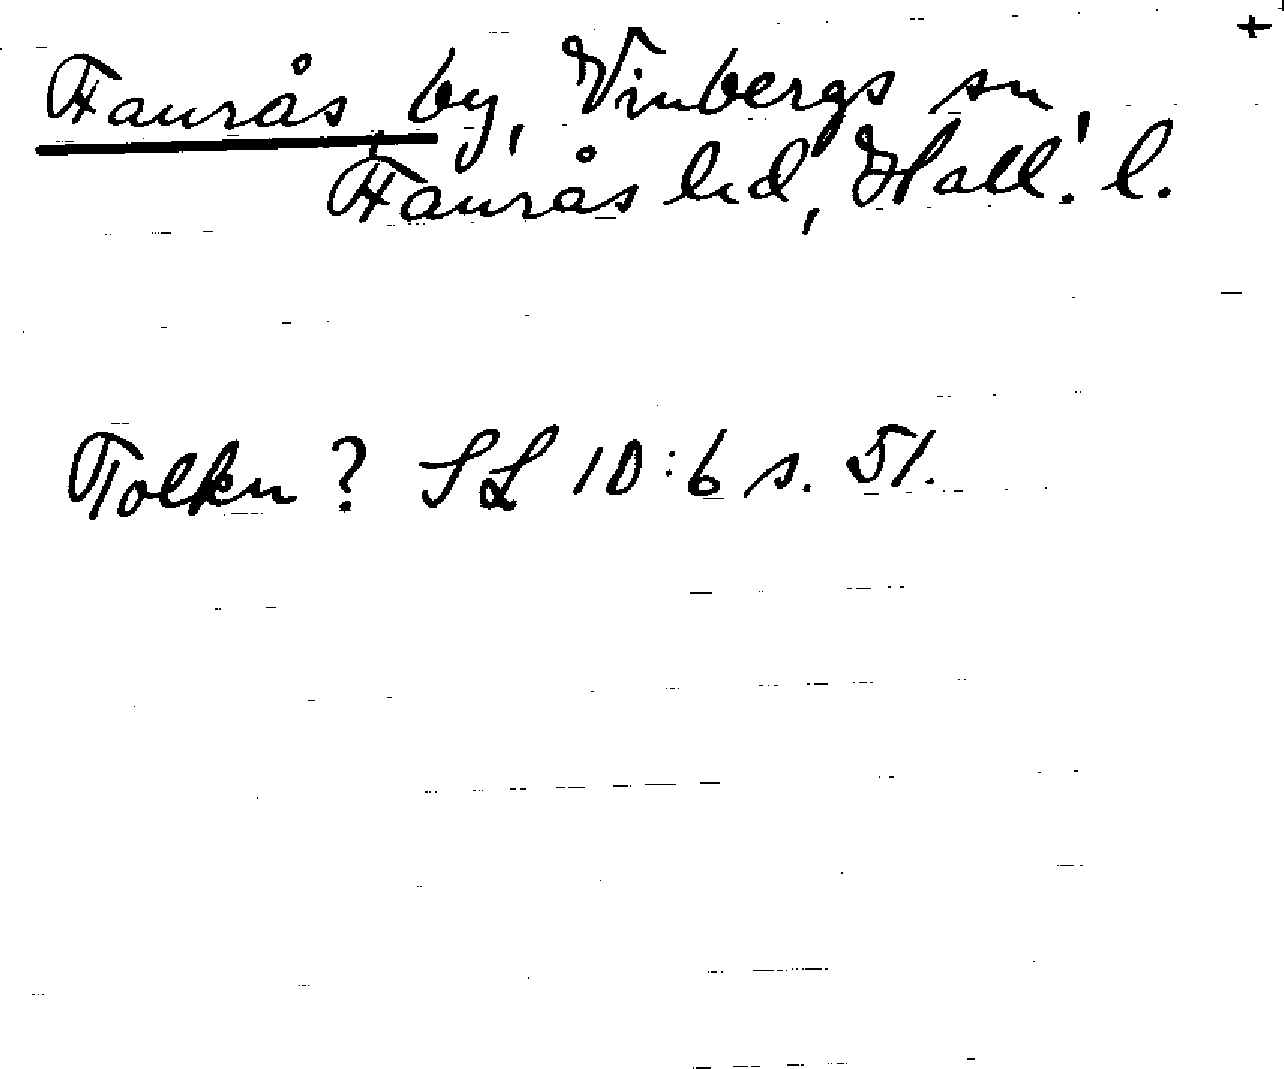 +
Faurås by, Vinbergs sn,
Faurås hd, Hall. l.
Tolkn? SL 10:6 s. 51.